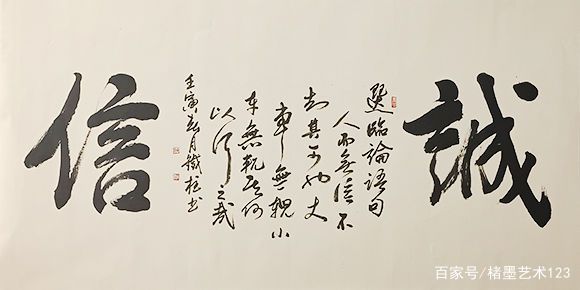 誠
選臨論語句
人而無信不
知其可也大
車無輗小
車無軏其何
以行之哉
壬寅春月鐵柱书
信
百家号/楮墨艺术123